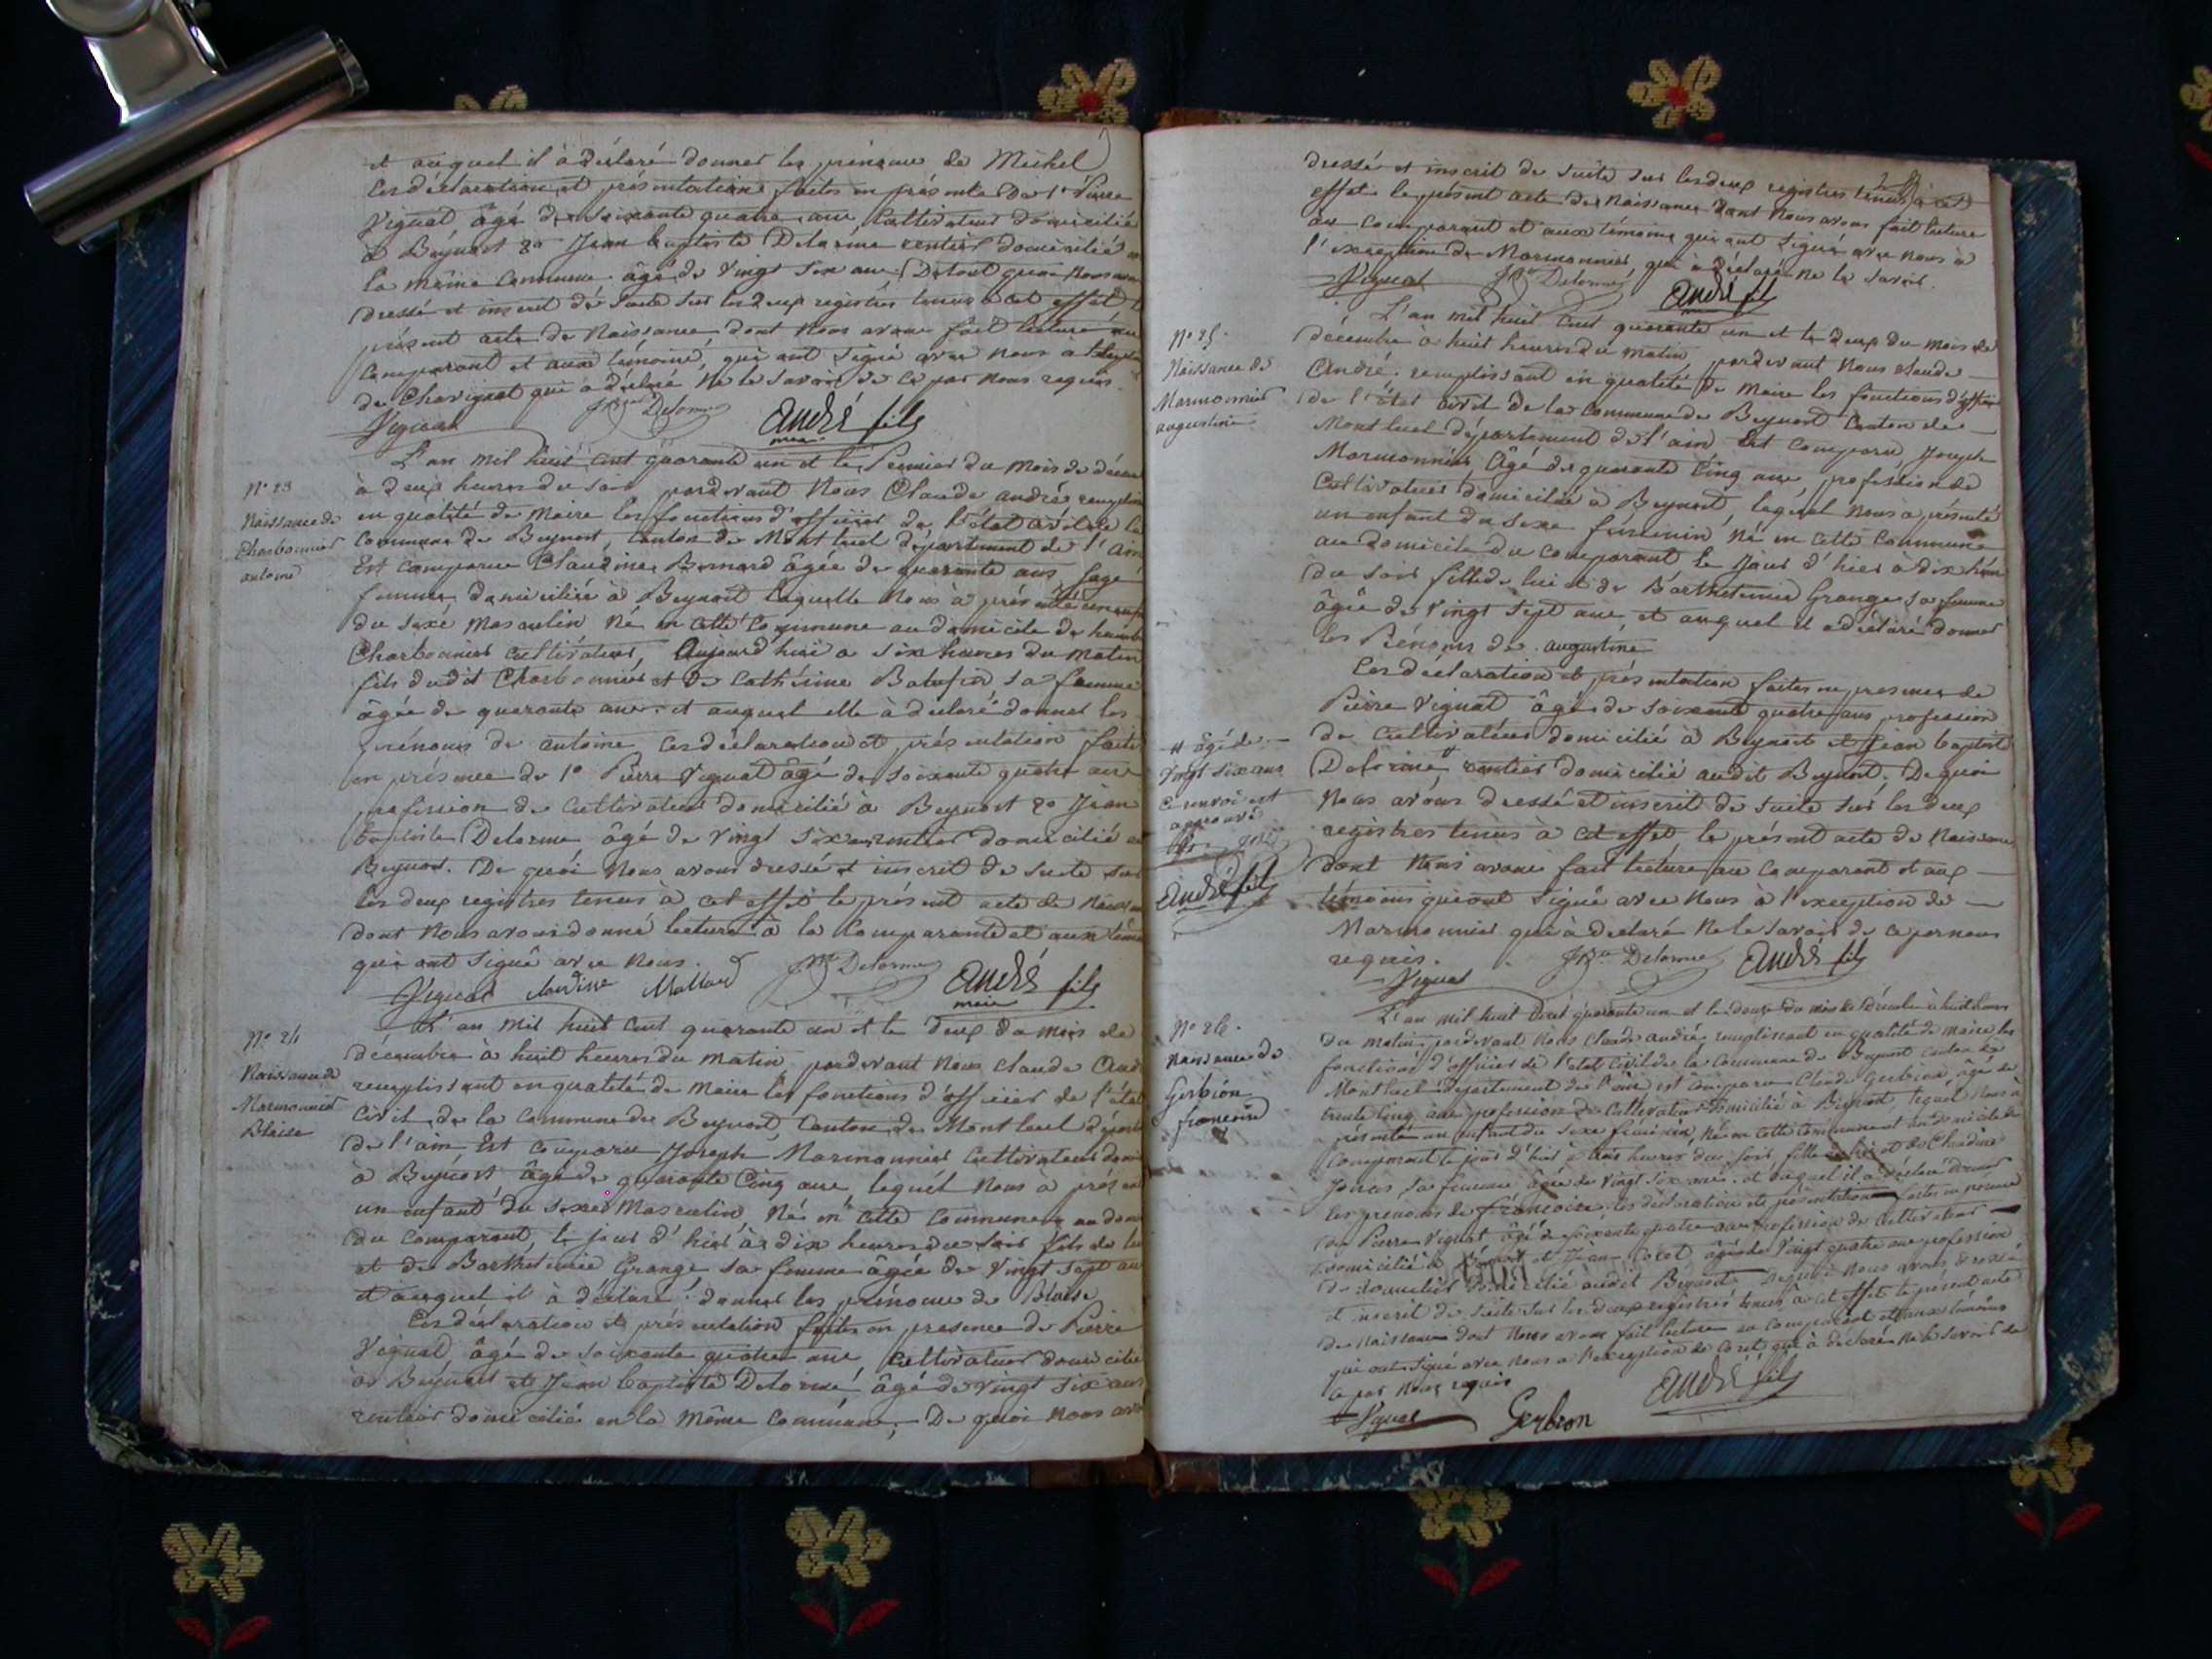 et auquel il à déclaré donner les prénoms de Michel
Ces déclaration et présentation faites en présence de 1° Pierre
Vignat âgé de soixante quatre ans, Cultivateur domicilié
à Beynost 2° Jean baptiste Delorme rentier domicilié
la même Commune âgé de Vingt six ans, De tout quoi Nous
dressé et inscrit de Suite sur les deux registres tenus à cet effet
présent acte de Naissance dont Nous avons fait lecture au
Comparant et aux témoins, qui ont Signé avec Nous à
de Charignat qui à déclaré Ne le Savoir de ce par Nous requis.
Vignat JBte Delorme André fils
maire
N° 23
Naissance de
Charbonnier
antoine
L'an mil huit cent quarante un et le Premier du mois de
à deux heures du soir pardevant Nous Claude andré
en qualité de Maire les fonctions d'officier de l'état civil de la
Commune de Beynost, Canton de Montluel département de l'ain
Est comparue Claudine Bernard âgée de quarante ans, Sage
femme, domiciliée à Beynost laquelle Nous à présenté
du Sexe Masculin Né en cette Commune au domicile de
Charbonnier Cultivateur, Aujourd'hui a six heures du Matin
fils dudit Charbonnier et de Cathérine sa femme
âgée de quarante ans. et auquel elle à déclaré donner les
prénoms de antoine, Ces déclaration et présentation faites
en présence de 1° Pierre Vignat âgé de soixante quatre ans
profession de Cultivateur domicilié à Beynost 2° Jean
baptiste Delorme âgé de Vingt six ans rentier domicilié
Beynost. De quoi Nous avons dressé et inscrit de Suite sur
les deux registres tenus à cet effet le présent acte de
dont Nous avons donné lecture à la Comparante et aux
qui ont Signé avec Nous.
Vignat JBte Delorme André fils
maire
N° 24
Naissance de
Marmonnier
Blaise
L'an Mil huit Cent quarante un et le deux du mois de
décembre à huit heures du matin, pardevant Nous Claude
remplissant en qualité de Maire les fonctions d'officier de l'état
Civil de la Commune de Beynost, Canton de Montluel
de l'ain Est Comparu Joseph Marmonnier Cultivateur
à Beynost, âgé de quarante Cinq ans lequel Nous a
un enfant du Sexe Masculin Né en cette Commune au
du Comparant, le jour d'hier à dix heures du Soir fils de
et de Barthélemie Grange Sa femme âgée de Vingt Sept
et auquel il à déclaré donner les prénoms de Blaise
Ces déclaration et présentation faites en presence de Pierre
Vignat âgé de soixante quatre ans Cultivateur
à Beynost et Jean baptiste Delorme âgé de vingt six ans
rentier domicilié en la Même Commune, De quoi Nous
dressé et inscrit de Suite sur les deux registres tenus à cet
effet le présent acte de Naissance dont Nous avons fait lecture
au Comparant et aux témoins qui ont Signé avec Nous à
l'exception de Marmonnier qui à déclaré Ne le Savoir.
Vignat JBte Delorme André fils
N° 25.
Naissance de
Marmonnier
augustine
L'an mil huit Cent quarante un et le deux du mois de
décembre à huit heures du matin, pardevant Nous Claude
André. remplissant en qualité de Maire les fonctions
de l'état civil de la Commune de Beynost Canton de
Montluel département de l'ain Est Comparu Joseph
Marmonnier, âgé de quarante Cinq ans, profession de
Cultivateur domicilié à Beynost, lequel Nous à présenté
un enfant du Sexe féminin, Né en cette Commune
au domicile du Comparant le jour d'hier à dix
du Soir fille de lui et de Barthelemie Grange Sa femme
âgée de Vingt Sept ans, et auquel il à déclaré donner
les Prénoms de augustine
Ces déclaration et présentation faites en presence de
Pierre Vignat âgé de soixante quatre ans profession
de Cultivateur domicilié à Beynost et Jean baptiste
Delorme # rentier domicilié audit Beynost. De quoi
Nous avons dressé et inscrit de Suite sur les deux
registres tenus à cet effet le présent acte de Naissance
dont Nous avons fait lecture au Comparant et aux
témoins qui ont Signé avec Nous à l'exception de
Marmonnier qui à déclaré Ne le Savoir de ce par nous
requis.
# âgé de
Vingt Six ans
Ce renvoi est
approuvé
André fils
Vignat JBte Delorme André fils
N° 26.
Naissance de
Gerbion
françoise
L'an mil huit Cent quarante un et le douze du mois de Décembre à huit heures
du matin, pardevant Nous Claude andré, remplissant en qualité de maire les
fonctions d'officier de l'état Civil de la Commune de Beynost Canton de
Montluel département de l'ain est Comparu Claude Gerbion, âgé de
trente Cinq ans profession de Cultivateur domicilié à Beynost, lequel Nous à
présenté un enfant du Sexe féminin, Né en cette Commune au domicile du
Comparant le jour d'hier à heures du Soir, fille de lui et de Claudine
sa femme âgée de Vingt Six ans. et auquel il à déclaré donner
les prenoms de françoise. Ces déclaration et présentation faites en présence
de Pierre Vignat âgé de soixante quatre ans profession de Cultivateur
domicilié à Beynost et Jean âgé de Vingt quatre ans profession
de domicilié audit Beynost De quoi Nous avons dressé
et inscrit de Suite sur les deux registres tenus à cet effet le présent acte
de Naissance dont Nous avons fait lecture au Comparant et aux témoins
qui ont Signé avec Nous à l'exception de qui à déclaré Ne le Savoir de
ce par Nous requis
Vignat Gerbion André fils